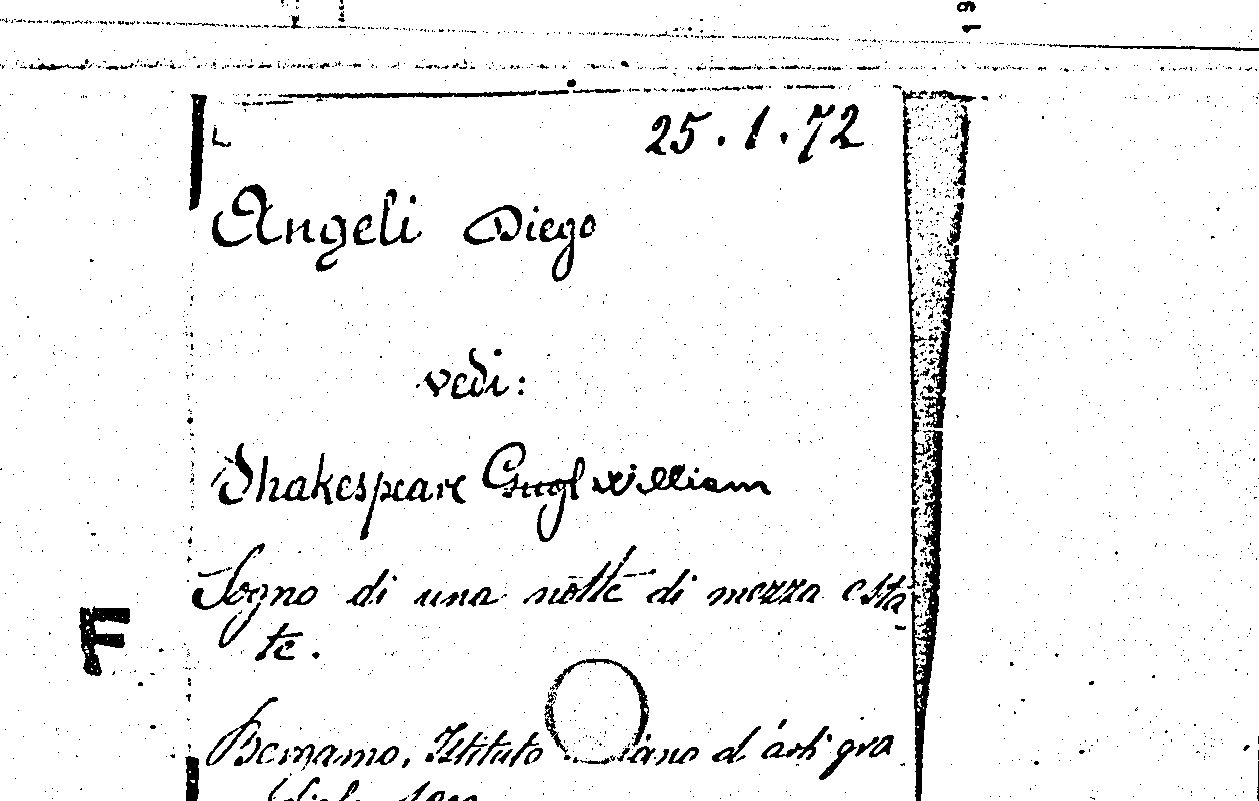 25.1.72
Angeli Diego
vedi:
Shakespeare Gugl William
Sogno di una notte di mezza esta-
te.
F
Bergamo, Istituto iano d'arti gra